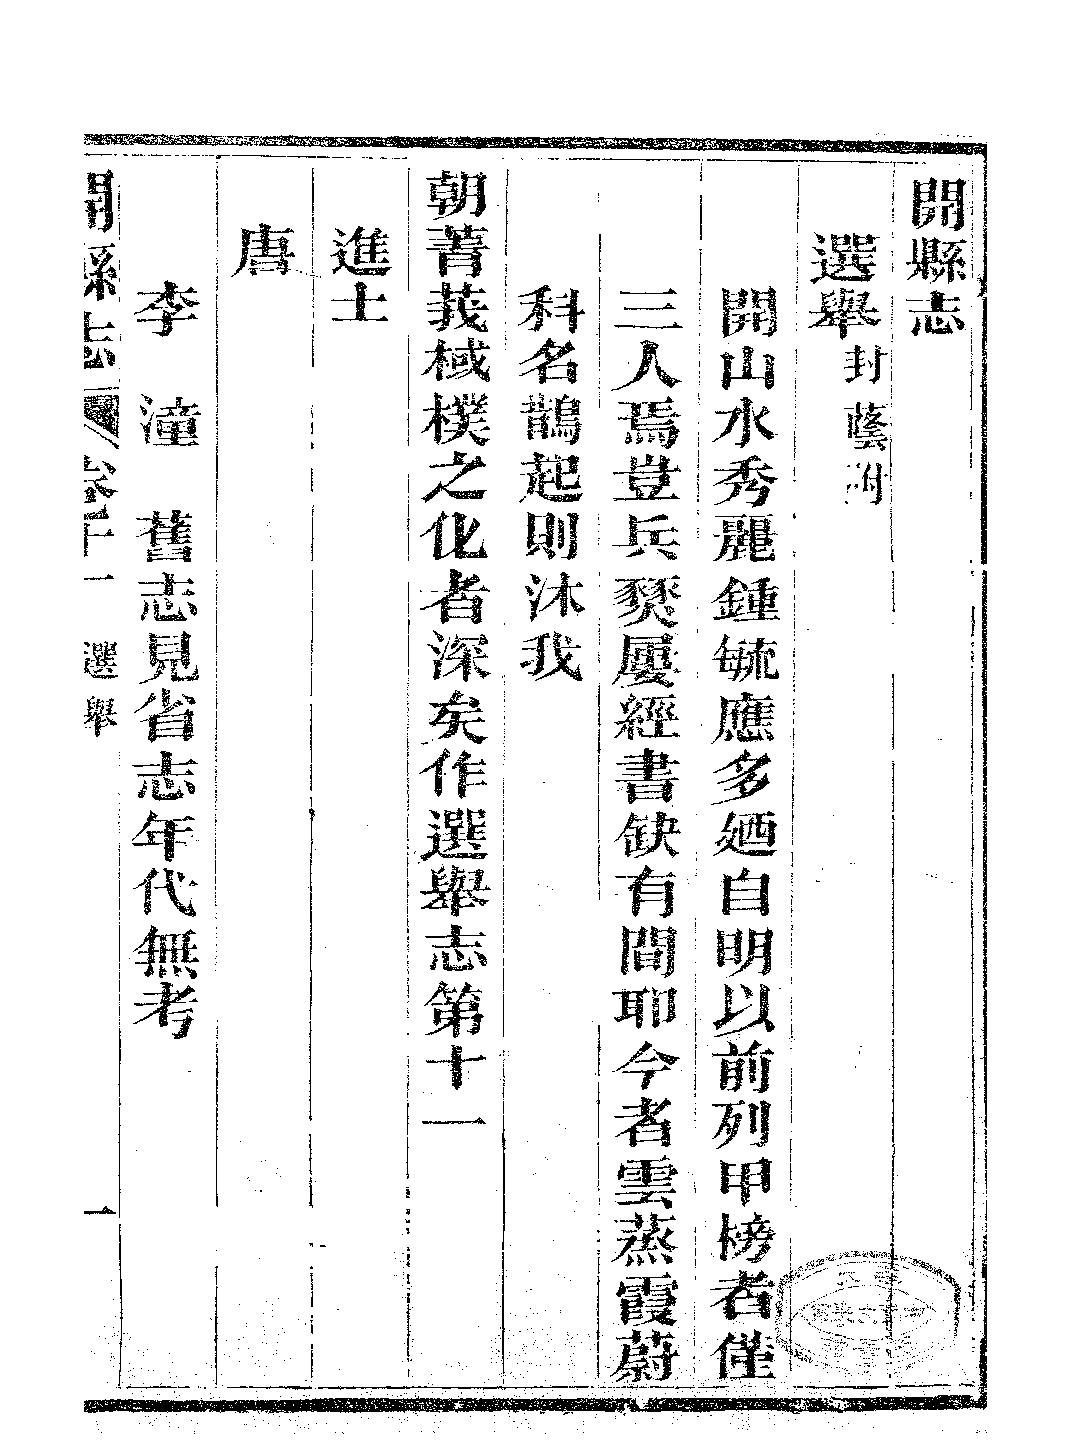 開縣志
選舉封蔭附
開山水秀麗鍾毓應多廼自明以前列甲榜者僅
三人焉豈兵燹屢經書缺有間耶今者雲蒸霞蔚
科名鵲起則沐我
朝菁莪棫樸之化者深矣作選舉志第十一
進士
唐
李潼 舊志見省志年代無考
開縣志 卷十一 選舉 一